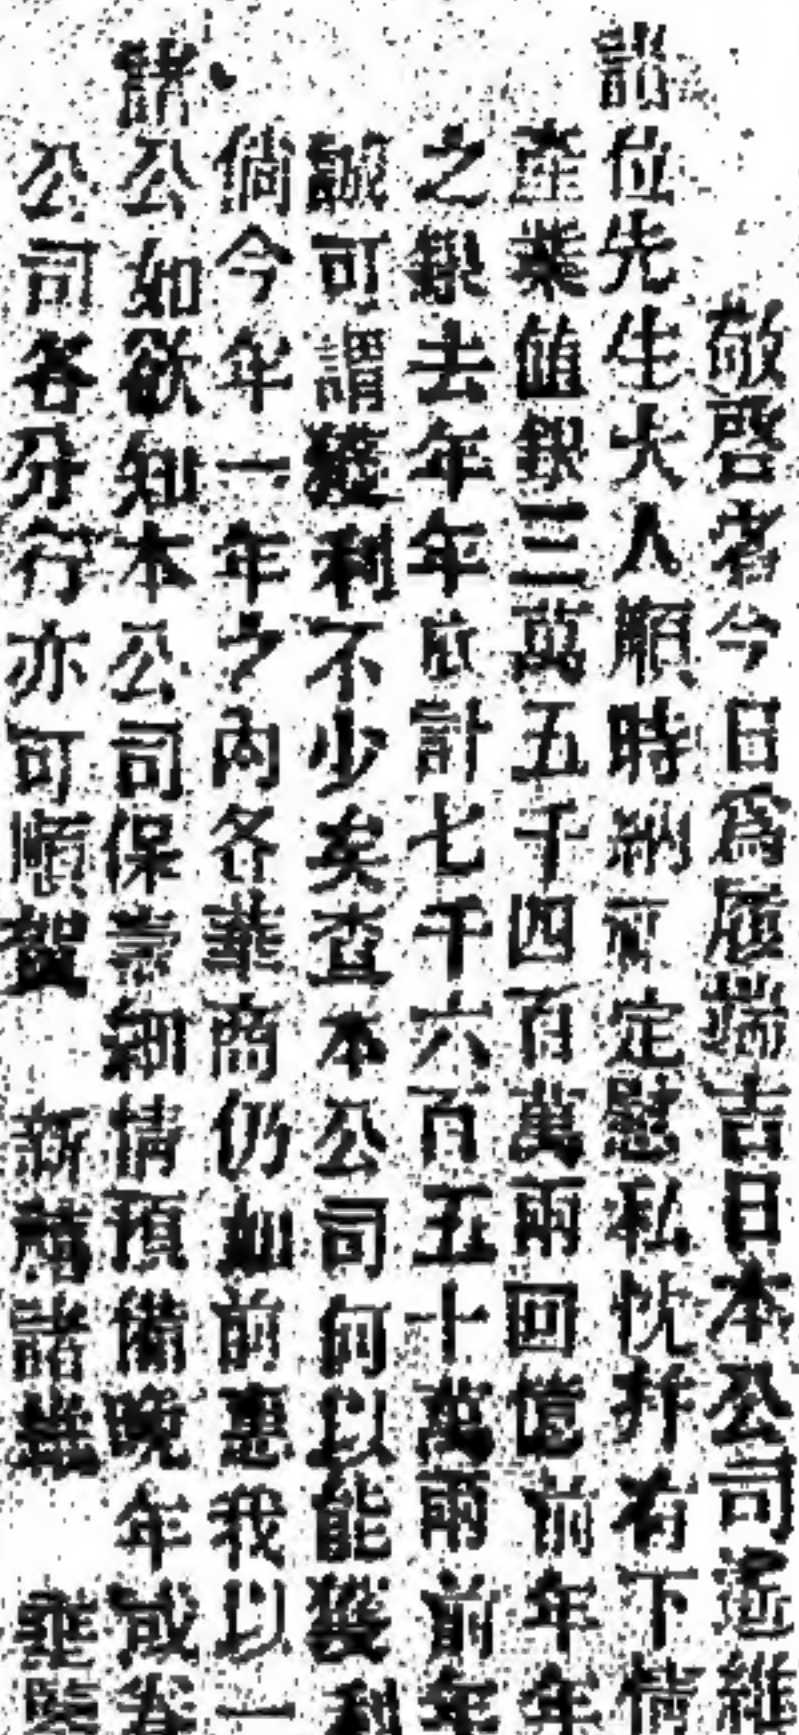 敬啓者今日爲履端吉日本公司遥維
諸位先生大人順時納定慰私忱并有下情
產業值銀三萬五千四百萬兩回憶前年年
之銀去年年底計七千六百五十萬兩前年
誠可謂獲利不少矣查本公司何以能獲利
倘今年一年之內各華商仍如前惠我以一
諸公如欲知本公司保壽細情預備晚年或
公司各分行亦可順賀 新禧諸維 垂鑒